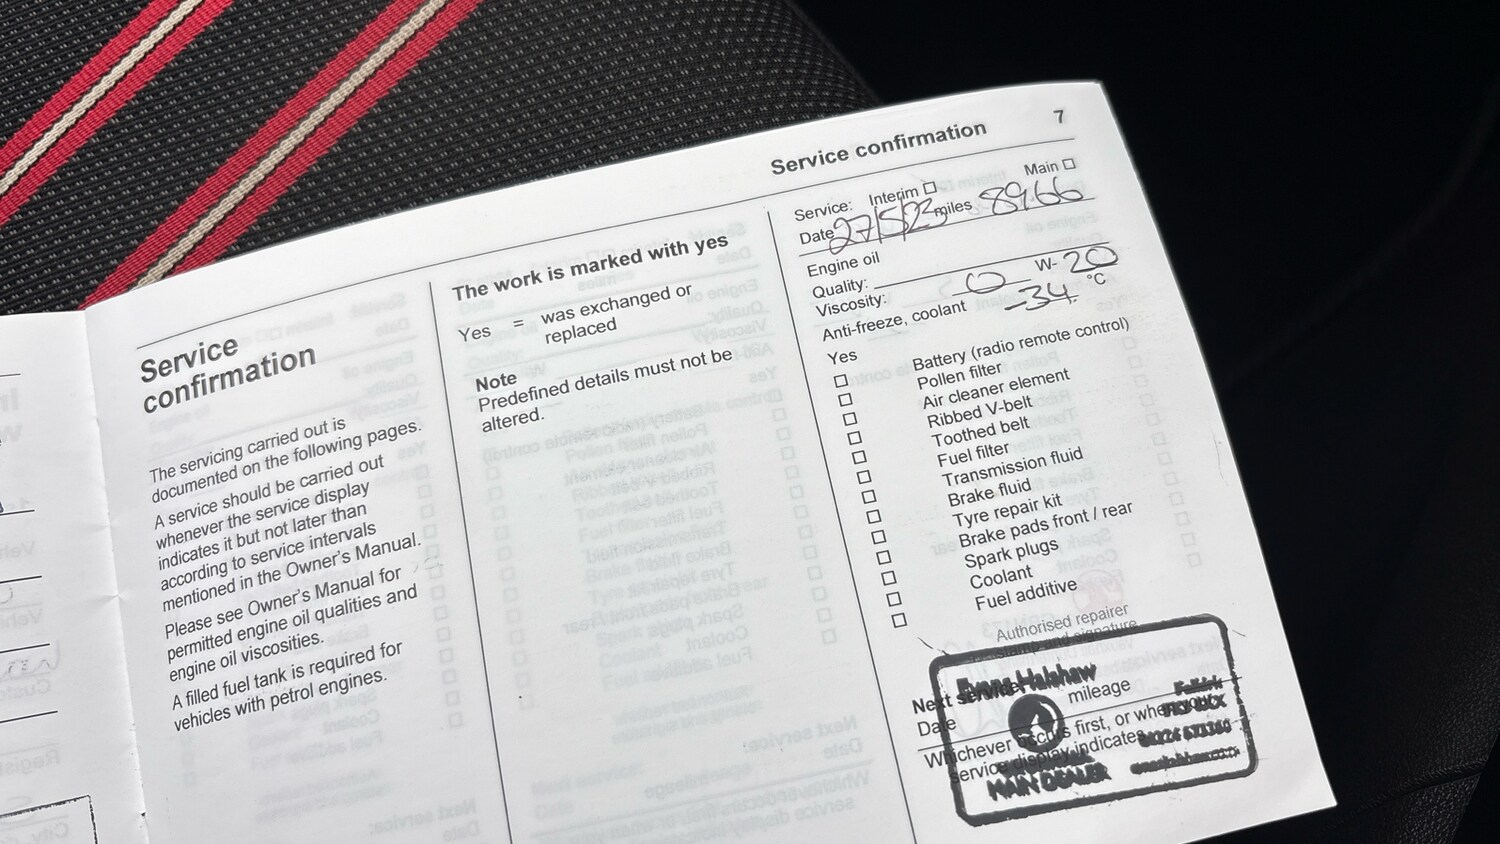 Service confirmation 7
Service
confirmation
The servicing carried out is
documented on the following pages.
A service should be carried out
whenever the service display
indicates it but not later than
according to service intervals
mentioned in the Owner's Manual.
Please see Owner's Manual for
permitted engine oil qualities and
engine oil viscosities.
A filled fuel tank is required for
vehicles with petrol engines.
The work is marked with yes
Yes = was exchanged or
replaced
Note
Predefined details must not be
altered.
Service: Interim Main
Date 27/5/23 miles 8966
Engine oil
Quality:
Viscosity: 0 W- 20
Anti-freeze, coolant -34 °C
Yes
Battery (radio remote control)
Pollen filter
Air cleaner element
Ribbed V-belt
Toothed belt
Fuel filter
Transmission fluid
Brake fluid
Tyre repair kit
Brake pads front / rear
Spark plugs
Coolant
Fuel additive
Authorised repairer
stamp and signature
Evans Halshaw
Falkirk
Next service:
Date mileage
Whichever occurs first, or when
service display indicates
MAIN DEALER